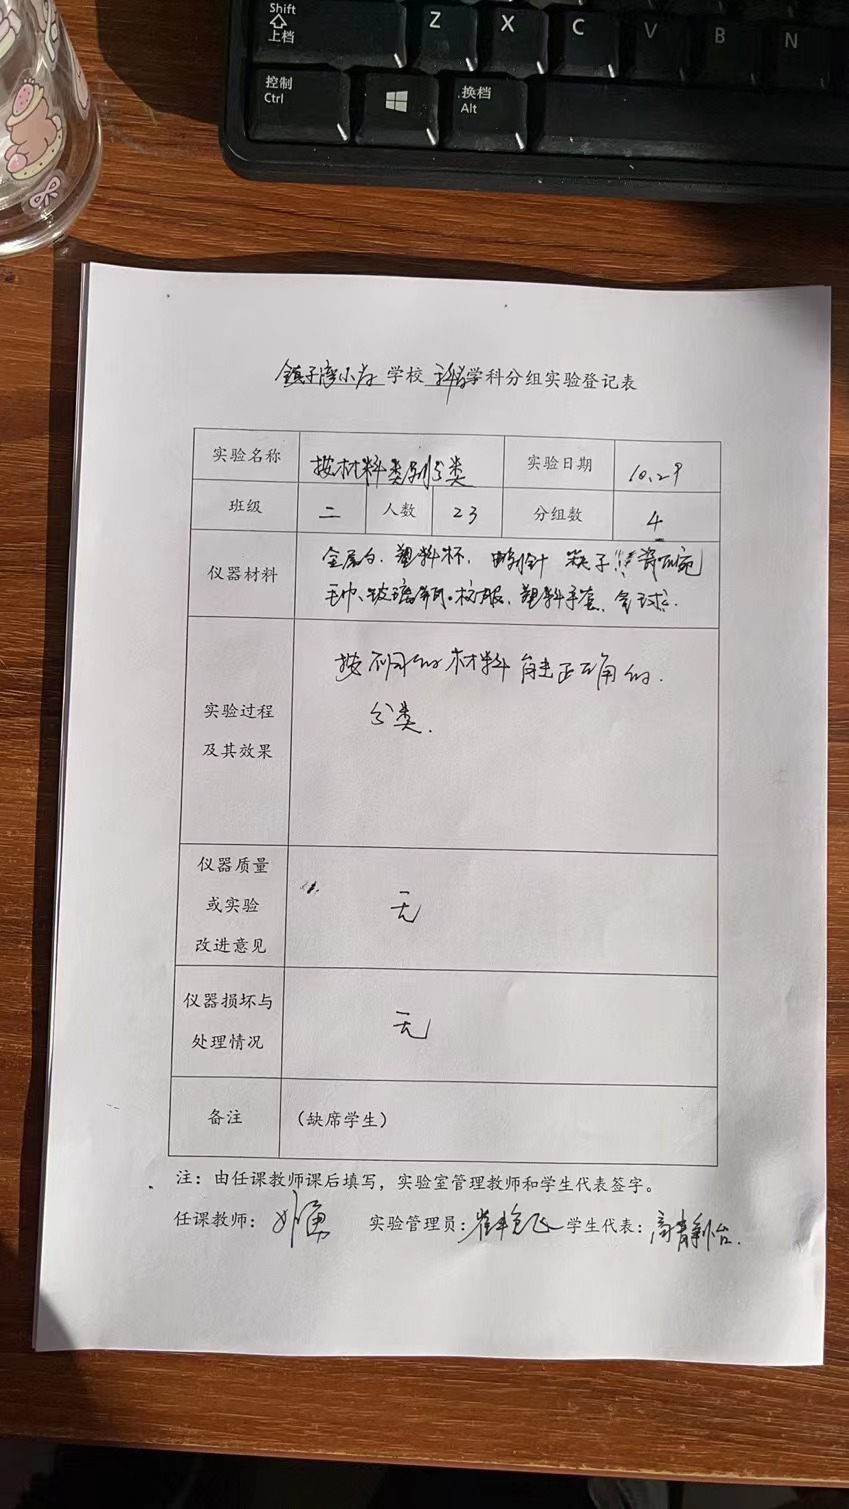 Shift
上档
Z X C V B N
控制
Ctrl
换档
Alt
镇子湾小学 学校 科学 学科分组实验登记表
实验名称 按材料类别分类 实验日期 10.29
班级 二 人数 23 分组数 4
仪器材料
塑料杯. 筷子 瓷碗
毛巾、玻璃瓶. 校服. 塑料手套. 气球.
实验过程
及其效果
按不同的材料能正确的.
分类.
仪器质量
或实验
改进意见
无
仪器损坏与
处理情况
无
备注 (缺席学生)
注：由任课教师课后填写，实验室管理教师和学生代表签字。
任课教师： 实验管理员： 学生代表：